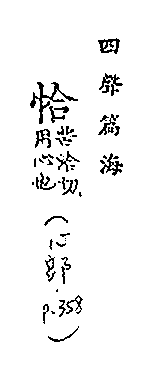 四聲篇海
恰
苦洽切,
用心也
(心部.
p.358)